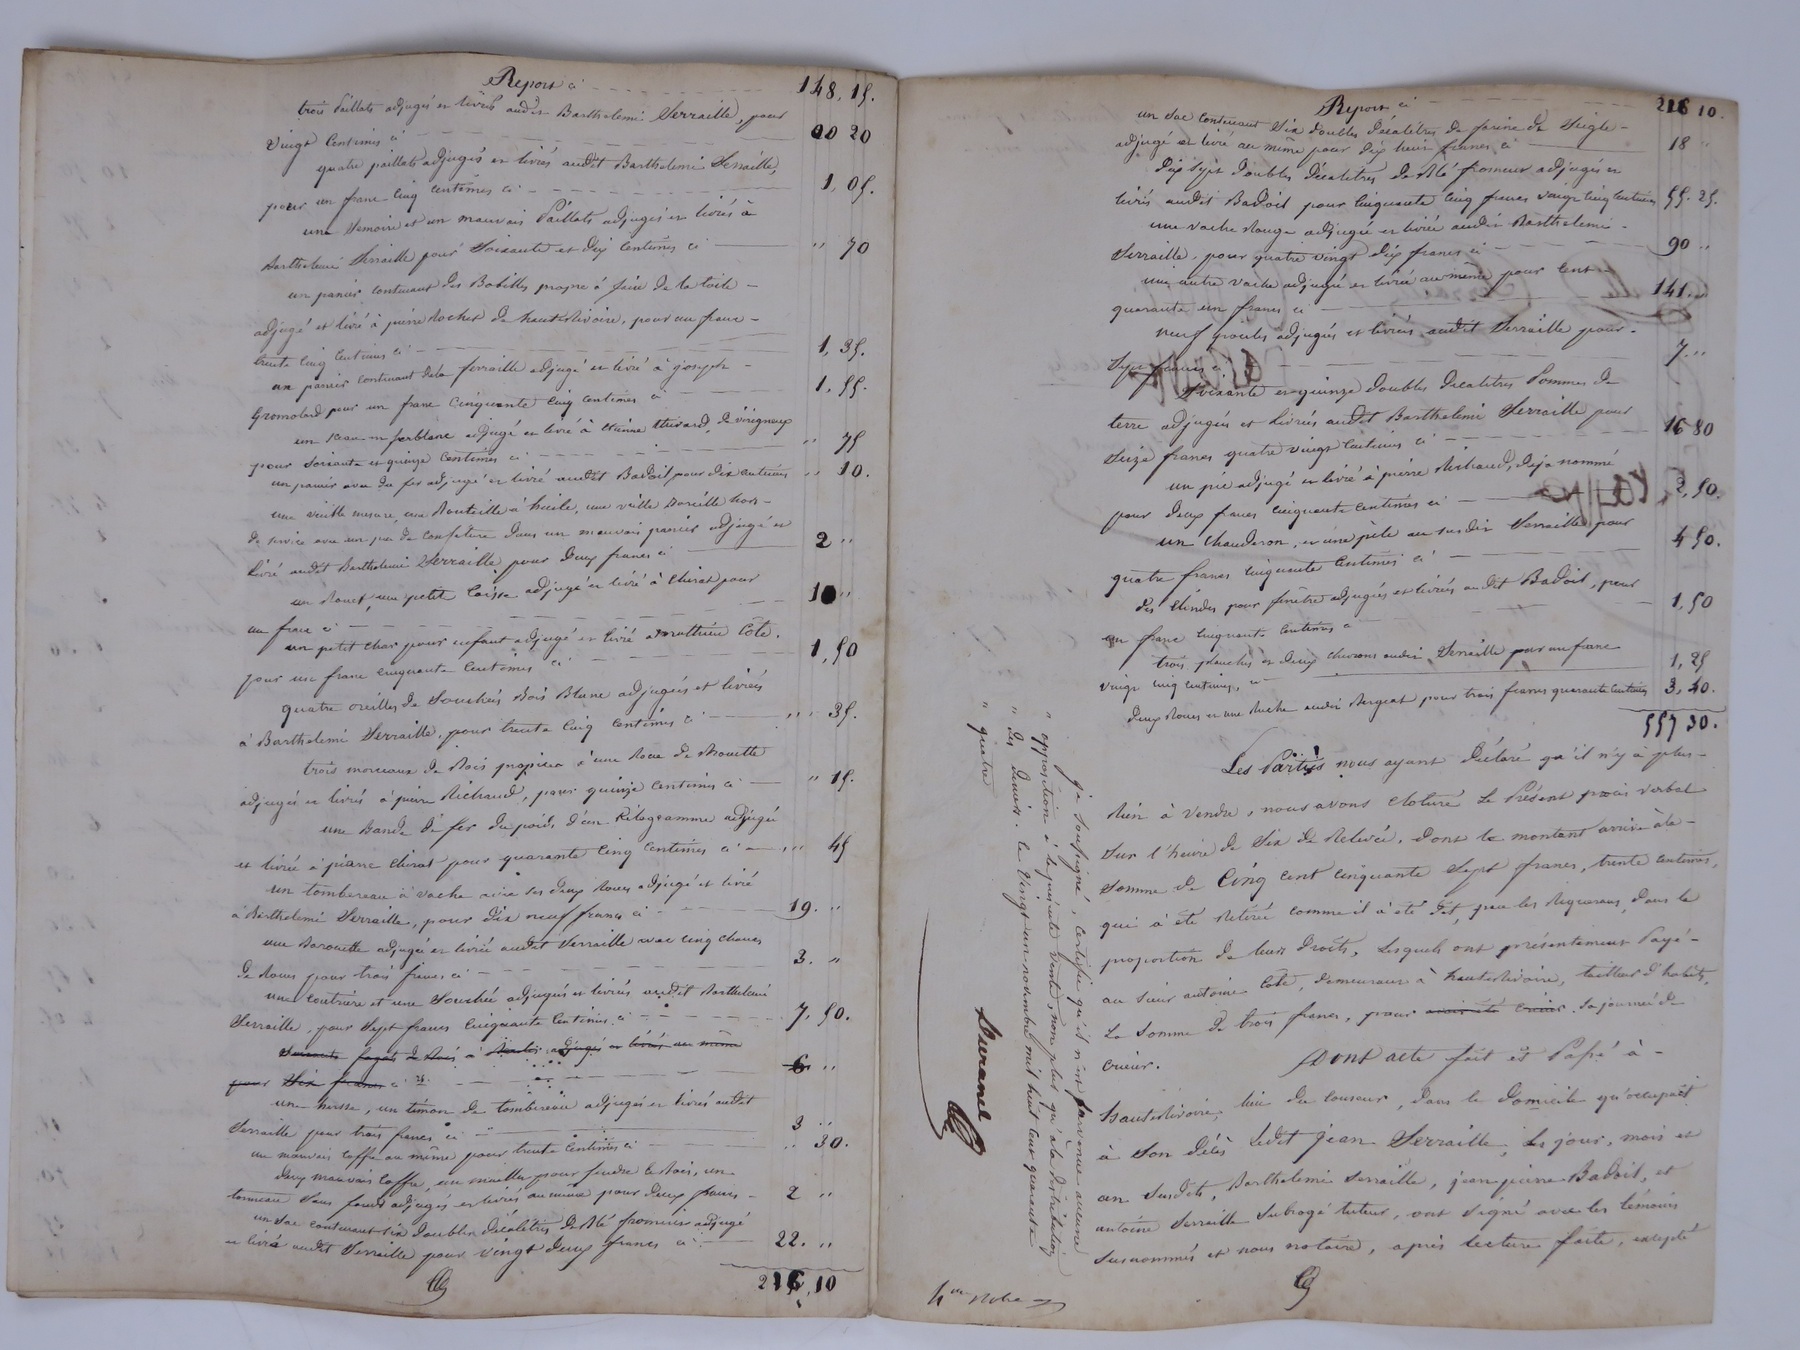 Report ci 148, 15.
trois Paillats adjugés et livrés audit Barthelemi Serraille, pour
vingt Centimes ci 00 20
quatre paillats adjugés et livrés audit Barthelemi Serraille,
pour un franc Cinq Centimes ci 1, 05.
une Semoire et un mauvais Paillats adjugés et livrés à
Barthelemi Serraille pour Soixante et dix Centimes ci " 70
un panier Contenant des Bobilles propre à de la toile
adjugé et livré à pierre Rochet de hauterivoire, pour un franc
trente Cinq Centimes ci 1, 35.
un panier Contenant dela ferraille adjugé et livré à joseph
Gromolard pour un franc Cinquante Cinq Centimes ci 1, 55.
un Seau en ferblanc adjugé et livré à étienne de virigneux
pour Soixante et quinze Centimes ci " 75
un panier avec du fer adjugé et livré audit Badoil pour dix centimes " 10.
une vieille mesure, une Bouteille à huile, une vieille hors
de Service avec un peu de dans un mauvais panier adjugé et
livré audit Barthelemi Serraille pour deux francs ci 2 "
un Rouet, une petite Caisse adjugé et livré à Chirat pour
un franc ci 1 "
un petit Char pour enfant adjugé et livré à mathieu Côte.
pour un franc Cinquante Centimes ci 1, 50
quatre oreilles de Bois Blanc adjugées et livrées
à Barthelemi Serraille, pour trente Cinq Centimes ci " " 35.
trois morceaux de Bois propres à une Roue de Brouette
adjugés et livrés à pierre Richaud, pour quinze Centimes ci " 15.
une Bande de fer du poids d'un Kilogramme adjugée
et livrée à pierre Chirat pour quarante Cinq Centimes ci " " 45
un tombereau à vache avec ses deux Roues adjugé et livré
à Barthelemi Serraille, pour dix neuf francs ci 19. "
une Barouette adjugée et livrée audit Serraille avec Cinq
de Roues pour trois francs ci 3. "
une et une adjugées et livrées audit Barthelemi
Serraille, pour Sept francs Cinquante Centimes ci 7, 50.
fagots de Bois à adjugés et livrés au même
pour Six francs ci 6 "
une, un timon de tombereau adjugés et livrés audit
Serraille pour trois francs ci 3 "
un mauvais Coffre au même pour trente Centimes ci " 30.
deux mauvais Coffre, un pour fendre le Bois, un
tonneau Sans fond adjugés et livrés au même pour deux francs 2 "
un Sac contenant Six doubles décalitres de Blé froment adjugé
et livré audit Serraille pour vingt deux francs ci 22. "
216, 10
Report ci 216 10.
un Sac Contenant Six doubles décalitres de farine de Seigle
adjugé et livré au même pour dix huit francs ci 18 "
dix Sept doubles décalitres de Blé froment adjugés et
livrés audit Badoil pour Cinquante Cinq francs vingt Cinq Centimes 55. 25.
une vache Rouge adjugée et livrée audit Barthelemi
Serraille, pour quatre vingt dix francs ci 90 "
une autre vache adjugée et livrée au même pour Cent
quarante un francs ci 141. "
neuf adjugés et livrés audit Serraille pour
Sept francs ci 7. "
Soixante et quinze doubles décalitres Pommes de
terre adjugés et livrés audit Barthelemi Serraille pour
Seize francs quatre vingt Centimes ci 16 80
un pic adjugé et livré à pierre Richaud, déja nommé
pour deux francs cinquante centimes ci 2, 50.
un Chauderon, et une pèle au susdit Serraille pour
quatre francs Cinquante Centimes ci 4 50.
des pour fenêtre adjugés et livrés audit Badoil, pour
un franc Cinquante Centimes ci 1, 50
trois planches et deux chevrons audit Serraille pour un franc
vingt cinq Centimes, ci 1, 25
deux Roues et une audit pour trois francs quarante Centimes 3, 40.
557 30.
Les Partiés nous ayant déclaré qu'il n'y à plus
Rien à vendre, nous avons cloturé le Présent procès verbal
Sur l'heure de Six de Relevée, dont le montant arrive à la
Somme de Cinq cent Cinquante Sept francs, trente Centimes,
qui à été Retirée comme il à été dit, par les Requerans, dans la
proportion de leurs droits, lesquels ont présentement Payé
au Sieur antoine Côte, demeurant à hauterivoire, tailleur d'habits,
la Somme de trois francs, pour avoir été Crieur. Sa journée de
Crieur. Dont acte fait et Passé à
hauterivoire, lieu du, dans le domicile qu'occupait
à Son décès ledit jean Serraille, les jour, mois et
an Susdits, Barthelemi Serraille, jean pierre Badoil, et
antoine Serraille Subrogé tuteur, ont Signé avec les témoins
Susnommés et nous notaire, après lecture faite, excepté
je Soussigné, Certifie qu'il n'est parvenue aucune
" opposition à la présente vente, non plus qu'à la distribution
" des denier. le vingt un novembre mil huit cent quarante
" quatre
Durand